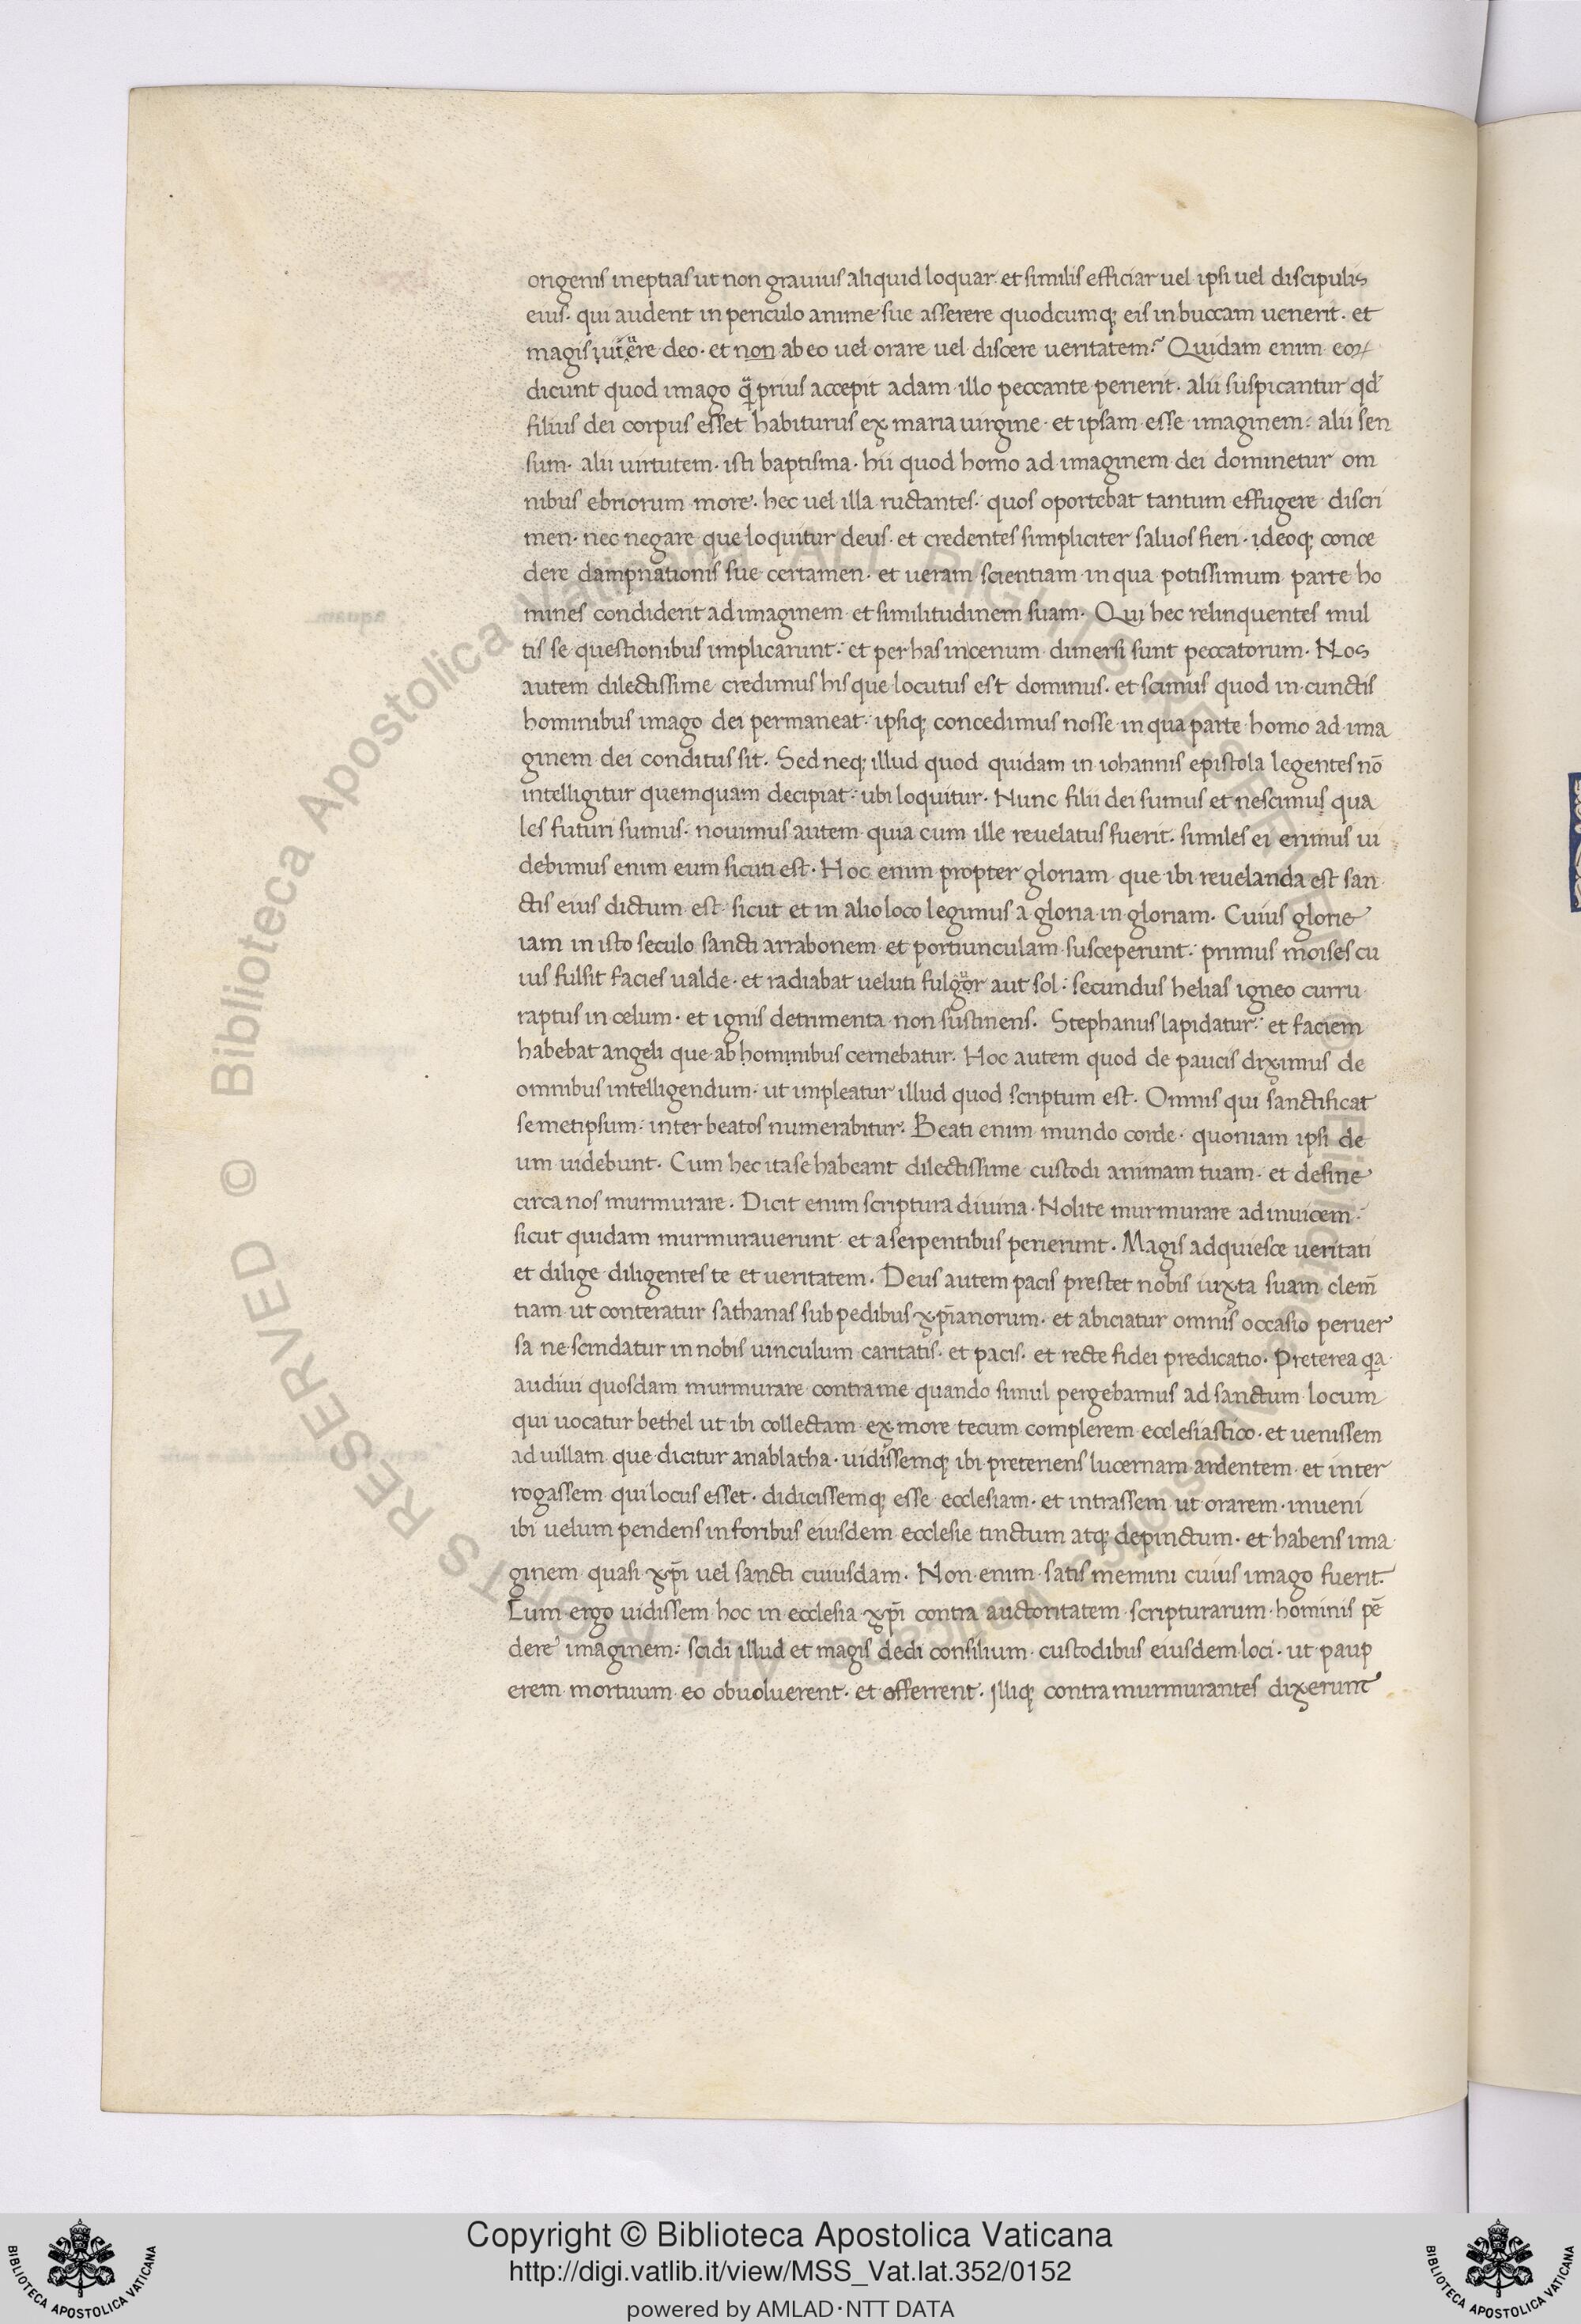 origenis ineptias ut non grauius aliquid loquar et similis efficiar uel ipsi uel discipulis
eius· qui audent in periculo anime sue asserere quodcumq; eis in buccam uenerit· et
magis deo· et non ab eo uel orare uel discere ueritatem? Quidam enim eoꝝ
dicunt quod imago prius accepit adam illo peccante perierit· alii suspicantur qd
filius dei corpus esset habiturus ex maria uirgine· et ipsam esse imaginem: alii sen
sum· alii uirtutem· isti baptisma· hii quod homo ad imaginem dei dominetur om
nibus ebriorum more· hec uel illa ructantes· quos oportebat tantum effugere discri
men· nec negare que loquitur deus· et credentes simpliciter saluos fieri· ideoq; conce
dere dampnationis sue certamen· et ueram scientiam in qua potissimum parte ho
mines condiderit ad imaginem et similitudinem suam· Qui hec relinquentes mul
tis se questionibus implicarunt: et per has in cenum dimersi sunt peccatorum· Nos
autem dilectissime credimus his que locutus est dominus· et scimus quod in cunctis
hominibus imago dei permaneat: ipsiq; concedimus nosse in qua parte homo ad ima
ginem dei conditus sit· Sed neq; illud quod quidam in iohannis epistola legentes nō
intelligitur quemquam decipiat: ubi loquitur· Nunc filii dei sumus et nescimus qua
les futuri sumus· nouimus autem quia cum ille reuelatus fuerit· similes ei erimus ui
debimus enim eum sicuti est· Hoc enim propter gloriam que ibi reuelanda est san
ctis eius dictum est· sicut et in alio loco legimus a gloria in gloriam· Cuius glorie
iam in isto seculo sancti arrabonem et portiunculam susceperunt: primus moises cu
ius fulsit facies ualde· et radiabat ueluti fulgor aut sol: secundus helias igneo curru
raptus in celum· et ignis detrimenta non sustinens· Stephanus lapidatur: et faciem
habebat angeli que ab hominibus cernebatur· Hoc autem quod de paucis diximus de
omnibus intelligendum· ut impleatur illud quod scriptum est· Omnis qui sanctificat
semetipsum: inter beatos numerabitur· Beati enim mundo corde· quoniam ipsi de
um uidebunt· Cum hec ita se habeant dilectissime custodi animam tuam· et desine
circa nos murmurare· Dicit enim scriptura diuina· Nolite murmurare adinuicem:
sicut quidam murmurauerunt et a serpentibus perierunt· Magis adquiesce ueritati
et dilige diligentes te et ueritatem· Deus autem pacis prestet nobis iuxta suam clem̄
tiam ut conteratur sathanas sub pedibus xp̄ianorum· et abiciatur omnis occasio peruer
sa ne scindatur in nobis uinculum caritatis· et pacis· et recte fidei predicatio· Preterea qa
audiui quosdam murmurare contra me quando simul pergebamus ad sanctum locum
qui uocatur bethel ut ibi collectam ex more tecum complerem ecclesiastico· et uenissem
ad uillam que dicitur anablatha· uidissemq; ibi preteriens lucernam ardentem et inter
rogassem qui locus esset· didicissemq; esse ecclesiam· et intrassem ut orarem· inueni
ibi uelum pendens in foribus eiusdem ecclesie tinctum atq; depinctum· et habens ima
ginem quasi xp̄i uel sancti cuiusdam· Non enim satis memini cuius imago fuerit·
Cum ergo uidissem hoc in ecclesia xp̄i contra auctoritatem scripturarum hominis pē
dere imaginem: scidi illud et magis dedi consilium custodibus eiusdem loci· ut paup
erem mortuum eo obuoluerent· et efferrent· Illiq; contra murmurantes dixerunt
Copyright © Biblioteca Apostolica Vaticana
http://digi.vatlib.it/view/MSS_Vat.lat.352/0152
powered by AMLAD·NTT DATA
BIBLIOTECA APOSTOLICA VATICANA
BIBLIOTECA APOSTOLICA VATICANA